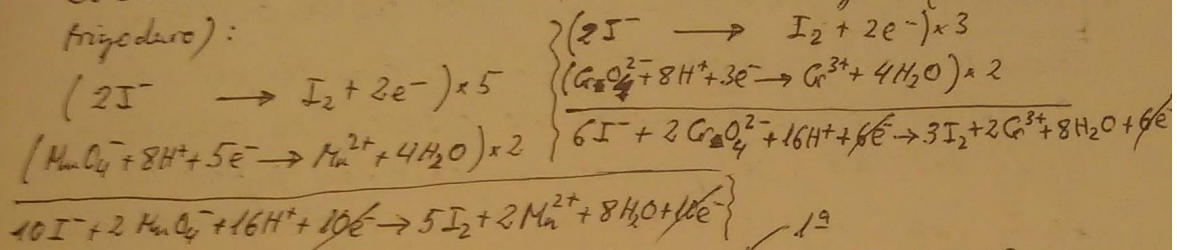 frigedaro):
(2I⁻ → I₂ + 2e⁻) × 5
(MnO₄⁻ + 8H⁺ + 5e⁻ → Mn²⁺ + 4H₂O) × 2
10I⁻ + 2 MnO₄⁻ + 16H⁺ + 10e⁻ → 5I₂ + 2Mn²⁺ + 8H₂O + 10e⁻
(2I⁻ → I₂ + 2e⁻) × 3
(CrO₄²⁻ + 8H⁺ + 3e⁻ → Cr³⁺ + 4H₂O) × 2
6I⁻ + 2 CrO₄²⁻ + 16H⁺ + 6e⁻ → 3I₂ + 2Cr³⁺ + 8H₂O + 6e⁻
1ª